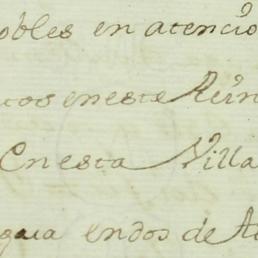 obles en atencio
tos en este Rein
En esta Villa
endos de A